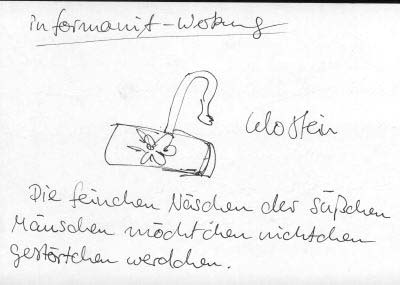 -Werbung
Klostein
Die feinchen Näschen der süßchen
Mänschen möchtchen nichtchen
gestörtchen werdchen.